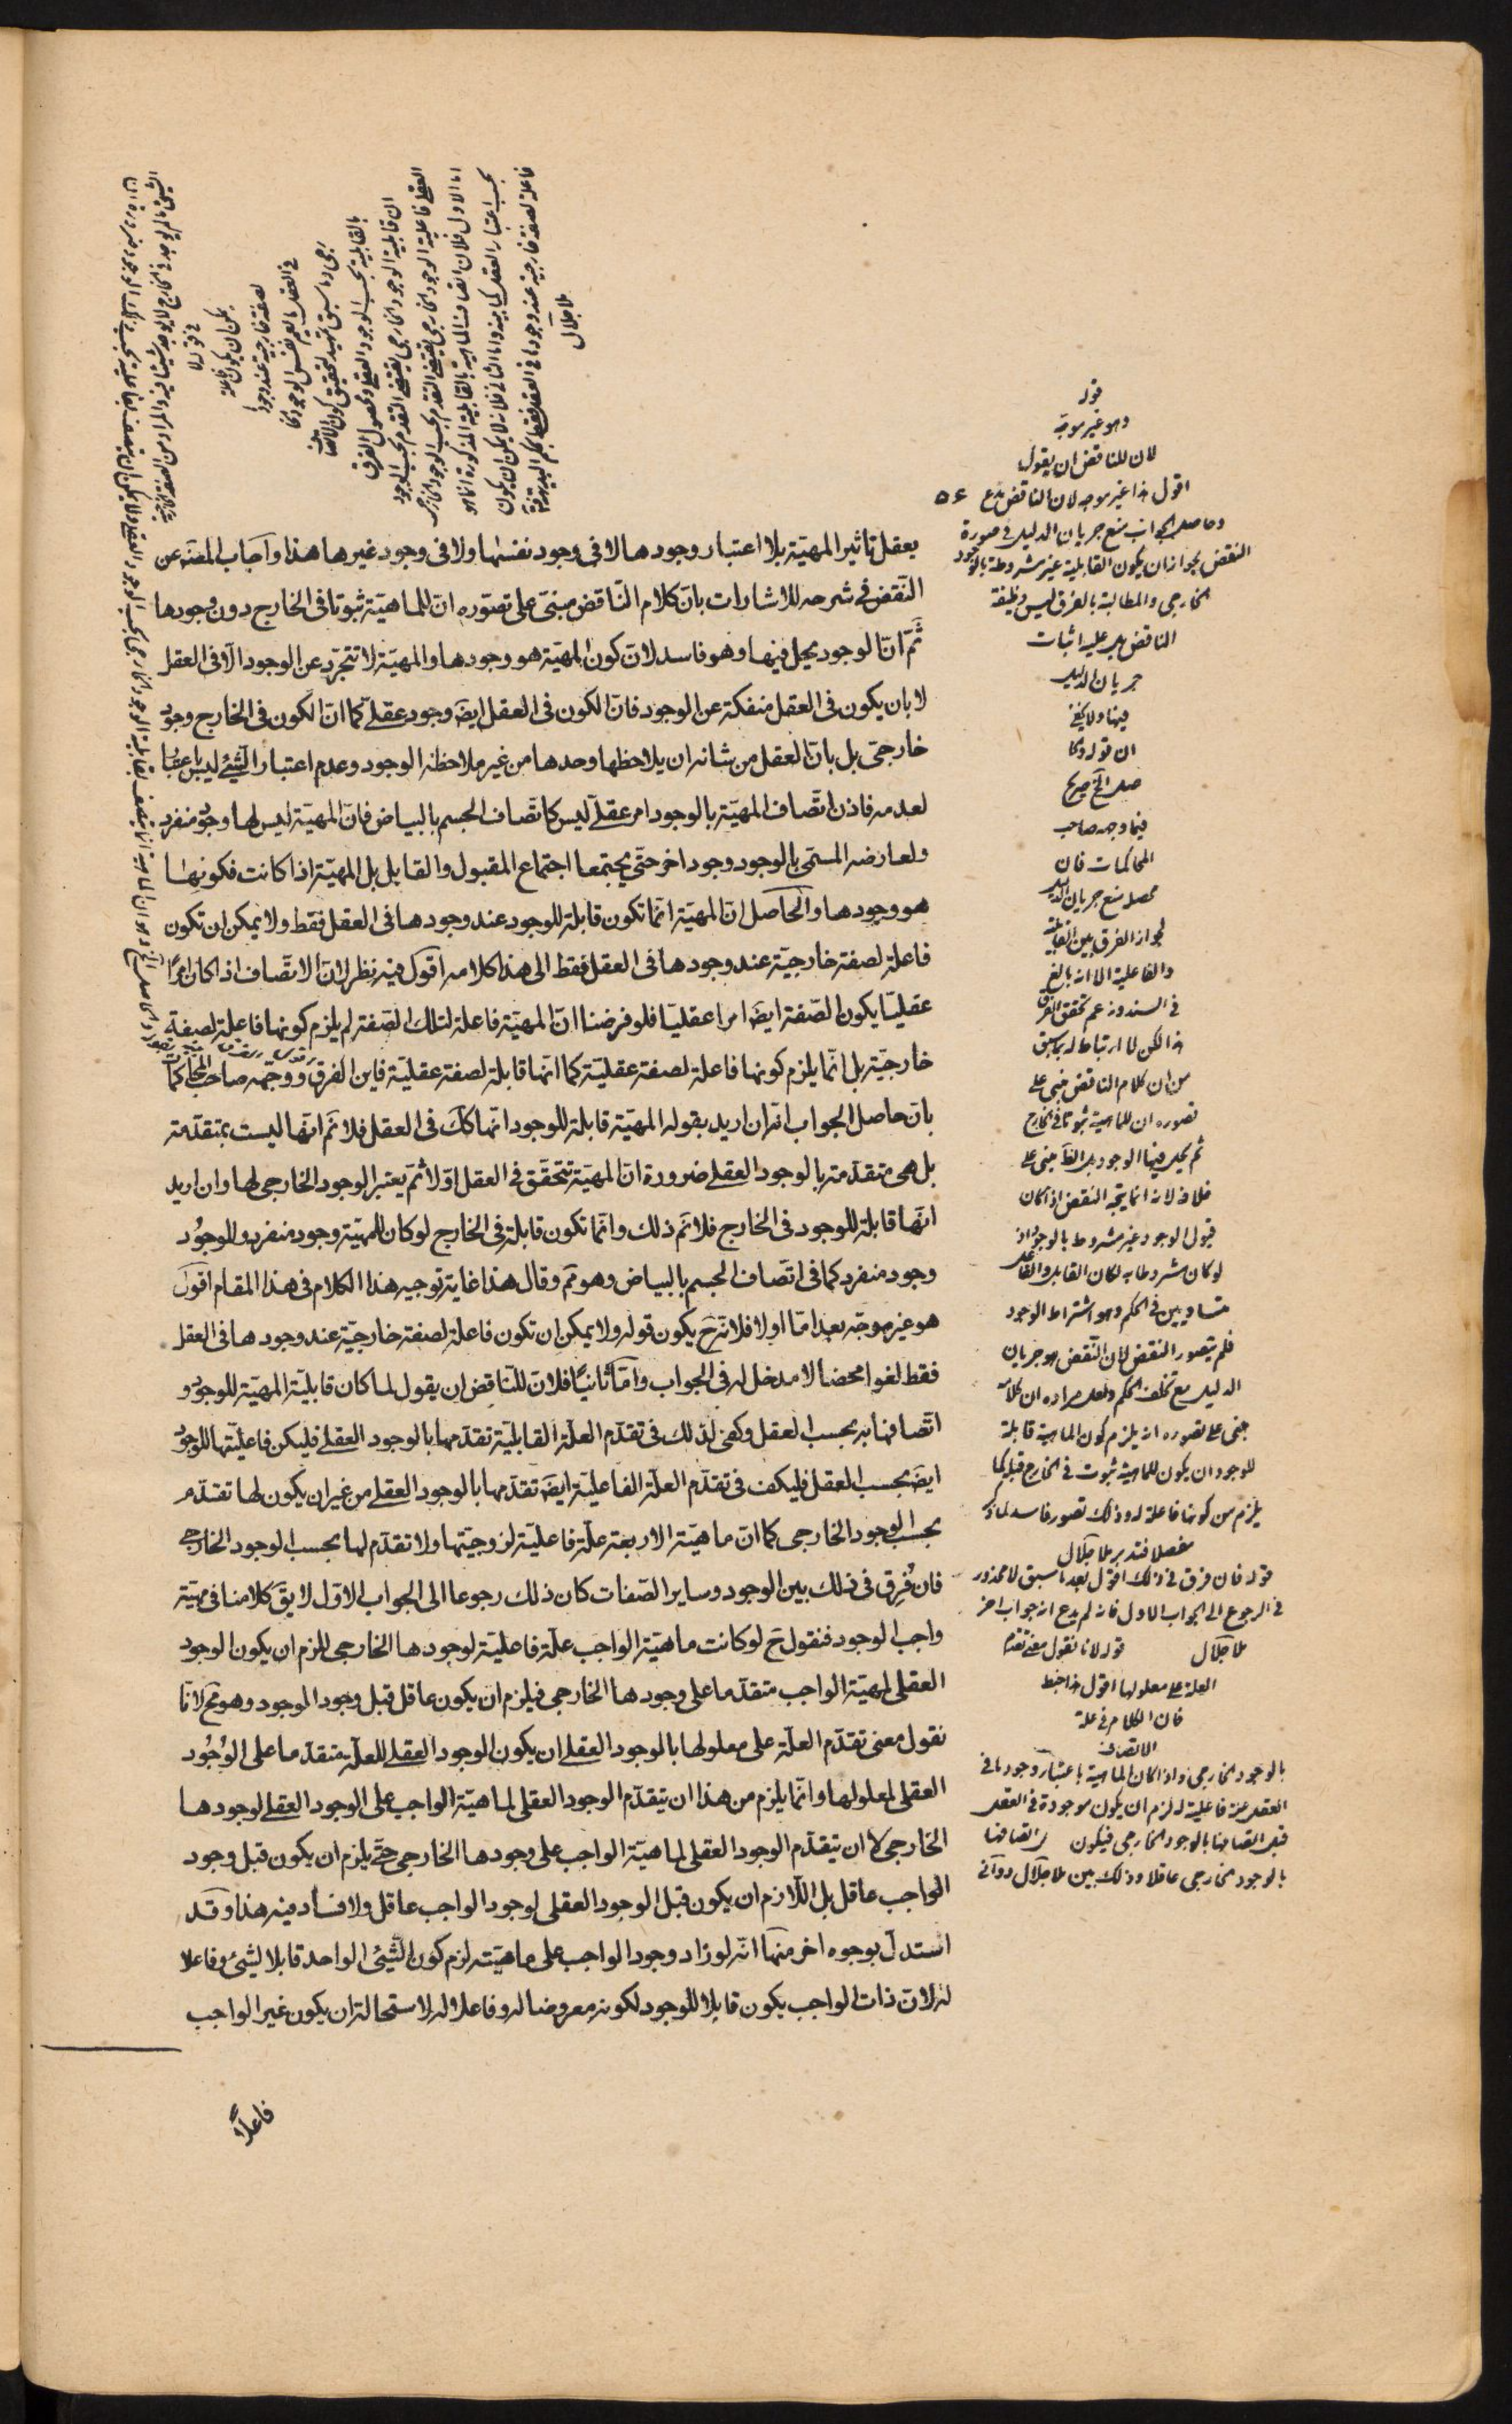 يعقل تاثير المهيّة بلا اعتبار وجودها لا فى وجود نفسها ولا فى وجود غيرها هذا وآجاب المصنّه عن
النّقض فى شرحه للاشارات بانّ كلام النّاقض مبنىّ على تصوّره انّ للماهيّة ثبوتا فى الخارج دون وجودها
ثَمّ انّ الوجود يحلّ فيها وهو فاسد لانّ كون المهيّة هو وجودها والمهيّة لا تتجرّد عن الوجود الّا فى العقل
لا بان يكون فى العقل منفكة عن الوجود فانّ الكون فى العقل ايضَ وجود عقلے كما انّ الكون فى الخارج وجود
خارجىّ بل بانّ العقل من شانه ان يلاحظها وحدها من غير ملاحظة الوجود وعدم اعتبار الشّيئ ليس اعتبارا
لعدمه فاذن اتّصاف المهيّة بالوجود امر عقلےّ ليس كاتّصاف الجسم بالبياض فانّ المهيّة ليس لها وجود منفرد
ولعارضه المسمّى بالوجود وجود اخر حتّى يجتمعا اجتماع المقبول والقابل بل المهيّة اذا كانت فكونها
هو وجودها وآلحاصل انّ المهيّة انّما تكون قابلة للوجود عند وجودها فى العقل فقط ولا يمكن ان تكون
فاعلة لصفة خارجيّة عند وجودها فى العقل فقط الى هذا كلامه اقول فيه نظر لانّ الاتّصاف اذا كان امرًا
عقليّا يكون الصّفة ايضَ امرا عقليّا فلو فرضنا انّ المهيّة فاعلة لتلك الصّفة لم يلزم كونها فاعلة لصفة
خارجيّة بل انّما يلزم كونها فاعلة لصفة عقليّة كما انّها قابلة لصفة عقليّة فاين الفرق ووجّهه صاحب المحاكمات
بانّ حاصل الجواب انّه ان اريد بقوله المهيّة قابلة للوجود انّها ككَ فى العقل فلا نمّ انّها ليست بمتقدّمة
بل هى متقدّمة بالوجود العقلے ضرورة انّ المهيّة تتحقّق فى العقل اوّلا ثمّ يعتبر الوجود الخارجى لها وان اريد
انّها قابلة للوجود فى الخارج فلا نمّ ذلك وانّما تكون قابلة فى الخارج لو كان للمهيّة وجود منفرد وللوجُود
وجود منفرد كما فى اتّصاف الجسم بالبياض وهو مَم وقال هذا غاية توجيه هذا الكلام فى هذا المقام اقول
هو غير موجّه بعد امّا اولا فلانّه حَ يكون قوله ولا يمكن ان تكون فاعلة لصفة خارجيّة عند وجودها فى العقل
فقط لغوا محضا لا مدخل له فى الجواب وآمّا ثانيًا فلانّ للنّاقض ان يقول لما كان قابليّة المهيّة للوجود و
اتّصافها به بحسب العقل وكفى لذلك فى تقدّم العلّة القابليّة تقدّمها بالوجود العقلے فليكن فاعليّتها للوجود
ايضَ بحسب العقل فليكف فى تقدّم العلّة الفاعليّة ايضَ تقدّمها بالوجود العقلے من غير ان يكون لها تقدّم
بحسب الوجود الخارجى كما انّ ماهيّة الاربعة علّة فاعليّة لزوجيّتها ولا تقدّم لها بحسب الوجود الخارجے
فان فُرِق فى ذلك بين الوجود وساير الصّفات كان ذلك رجوعا الى الجواب الاوّل لا يقَ كلامنا فى مهيّة
واجب الوجود فنقول حَ لو كانت ماهيّة الواجب علّة فاعليّة لوجودها الخارجى للزم ان يكون الوجود
العقلى لمهيّة الواجب متقدّما على وجودها الخارجى فيلزم ان يكون عاقل قبل وجود الموجود وهو مَح لانّا
نقول معنى تقدّم العلّة على معلولها بالوجود العقلے ان يكون الوجود العقلے للعلّة متقدّما على الوُجُود
العقلى لمعلولها وانّما يلزم من هذا ان يتقدّم الوجود العقلى لماهيّة الواجب على الوجود العقلے لوجودها
الخارجى لا ان يتقدّم الوجود العقلى لماهيّة الواجب على وجودها الخارجى حتّے يلزم ان يكون قبل وجود
الواجب عاقل بل اللّازم ان يكون قبل الوجود العقلى لوجود الواجب عاقل ولا فساد فيه هذا وقد
استدلّ بوجوه اخر منها انّه لو زاد وجود الواجب على ماهيّته لزم كون الشّيئ الواحد قابلا لشيئ وفاعلا
له لانّ ذات الواجب يكون قابلا للوجود لكونه معروضا له وفاعلا له لاستحالة ان يكون غير الواجب
فاعلًا
قوله
وهو غير موجّه
لان للناقض ان يقول
اقول هذا غير موجه لان الناقض مدع
وحاصل الجواب منع جريان الدليل فى صورة
النقض لجواز ان يكون القابلية غير مشروطة بالوجود
الخارجى والمطالبة بالفرق ليس وظيفة
الناقض بل عليه اثبات
جريان الدليل
فيها ولا يخفى
ان قوله وكما
صلح
فيما وجه صاحب
المحاكمات فان
محصله منع جريان الدليل
لجواز الفرق بين القابلية
والفاعلية الا انه بالغ
فى السند وزعم تحقق الفرق
هذا لكن لا ارتباط له بما سبق
من ان كلام الناقض مبنى على
تصوره ان للماهية ثبوتا فى الخارج
ثم يحل فيها الوجود بل النقض مبنى على
خلافه لانه انما يتجه النقض اذا كان
قبول الوجود غير مشروط بالوجود اذ
لو كان مشروطا به لكان القابل والفاعل
متساويين فى الحكم وهو اشتراط الوجود
فلم يتصور النقض لان النقض هو جريان
الدليل مع تخلف الحكم ولعل مراده ان كلامه
مبنى على تصوره انه يلزم كون الماهية قابلة
للوجود ان يكون للماهية ثبوت فى الخارج قبله كما
يلزم من كونها فاعلة له وذلك تصور فاسد لما ذكر
مفصلا فتدبر ملا جلال
قوله فان فرق فى ذلك اقول بعد ما سبق لا محذور
فى الرجوع الى الجواب الاول فانه لم يدع انه جواب اخر
ملا جلال قوله لانا نقول معنى تقدم
العلة على معلولها اقول هذا خبط
فان الكلام فى علة
الاتصاف
بالوجود الخارجى واذا كان الماهية باعتبار وجودها فى
العقل علة فاعلية له لزم ان يكون موجودة فى العقل
قبل اتصافها بالوجود الخارجى فيكون قبل اتصافها
بالوجود الخارجى عاقلا وذلك بين ملا جلال دوانى
فى قوله لا
يمكن ان يكون فاعلة
لصفة خارجية عند وجودها
فى العقل
بالقابلية بحسب الوجود العقلے وحصول الفرق
ان قابلية الوجود الخارجى يقتضى التقدم بحسب الوجود
العقلے فاعلية الوجود الخارجى يقتضى التقدم بحسب الوجود الخارجى
اما الاول فلان اتصاف الماهية بالقابلية المذكورة انما هو
بحسب اعتبار العقل كما بينه واما الثانى فلانه لا يمكن ان يكون
فاعلة لصفة خارجية عند وجودها فى العقل فقط بحكم البديهة
ملا جلال